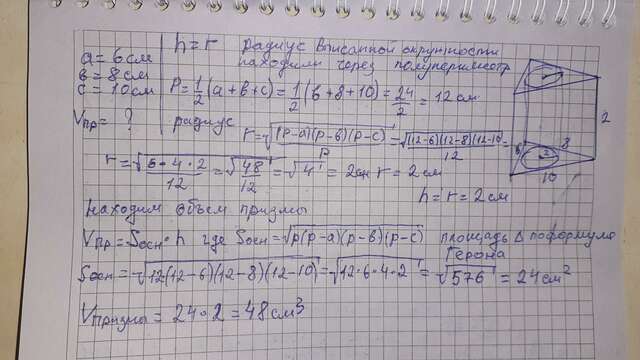 h = r радиус вписанной окружности
a = 6 см находим через полупериметр
в = 8 см
c = 10 см P = 1/2 (a + в + c) = 1/2 (6 + 8 + 10) = 24/2 = 12 см
Vпр = ? радиус
r = √((p-a)(p-в)(p-c)/p) = √((12-6)(12-8)(12-10)/12) =
r = √(6·4·2/12) = √(48/12) = √4 = 2 см r = 2 см
h = r = 2 см
2
6 8
10
Находим объем призмы
Vпр = Sосн · h где Sосн = √(p(p-a)(p-в)(p-c)) площадь Δ по формуле
Герона
Sосн = √(12(12-6)(12-8)(12-10)) = √(12·6·4·2) = √576 = 24 см²
Vпризмы = 24·2 = 48 см³